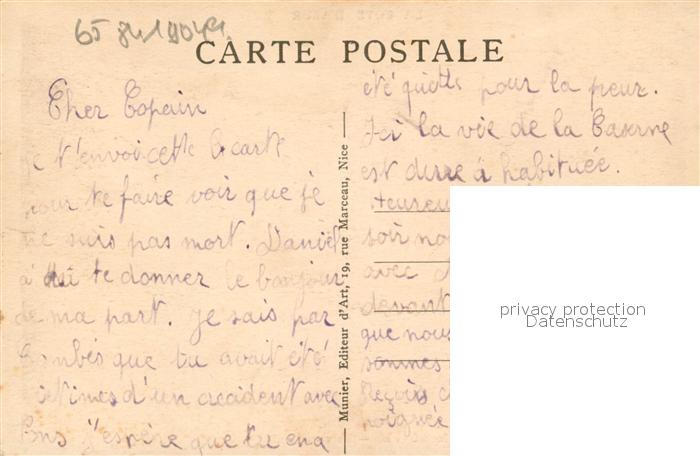 CARTE POSTALE
Cher Copain
t'envoi cette carte
pour te faire voir que je
ne suis pas mort. Daniel
a te donner le bonjour
de ma part. Je sais par
que tu avait été
ictimes d'un accident avec
j'espère que tu en a
Munier, Editeur d'Art, 19, rue Marceau, Nice
été quitte pour la peur.
Ici la vie de la Caserne
est dure à habituée.
soir
avec
devant
que nous
sommes
Reçois
poignée
privacy protection
Datenschutz